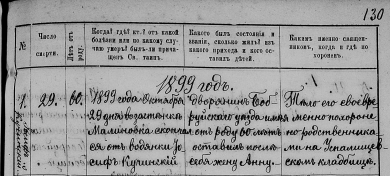 130
№
Число смерти.
Лѣтъ отъ роду.
Когда? гдѣ? кт.? отъ какой болѣзни или по какому случаю умеръ? былъ-ли причащенъ Св. таинъ.
Какого былъ состоянія и званія, сколько жилъ? изъ какого прихода и кого оставилъ дѣтей.
Какимъ именно священникомъ, когда и гдѣ похороненъ.
1899 годъ.
1.
29.
60.
1899 года Октября
29 дня въ застѣнкѣ
Малиновка скончал
отъ водянки Іо
сифъ Кучинскій
Дворянинъ Боб
руйскаго уѣзда имѣя
отъ роду 60 лѣтъ
оставилъ послѣ
себя жену Анну.
Тѣло его своевре
менно похороне
но родственника
ми на
скомъ кладбищѣ.